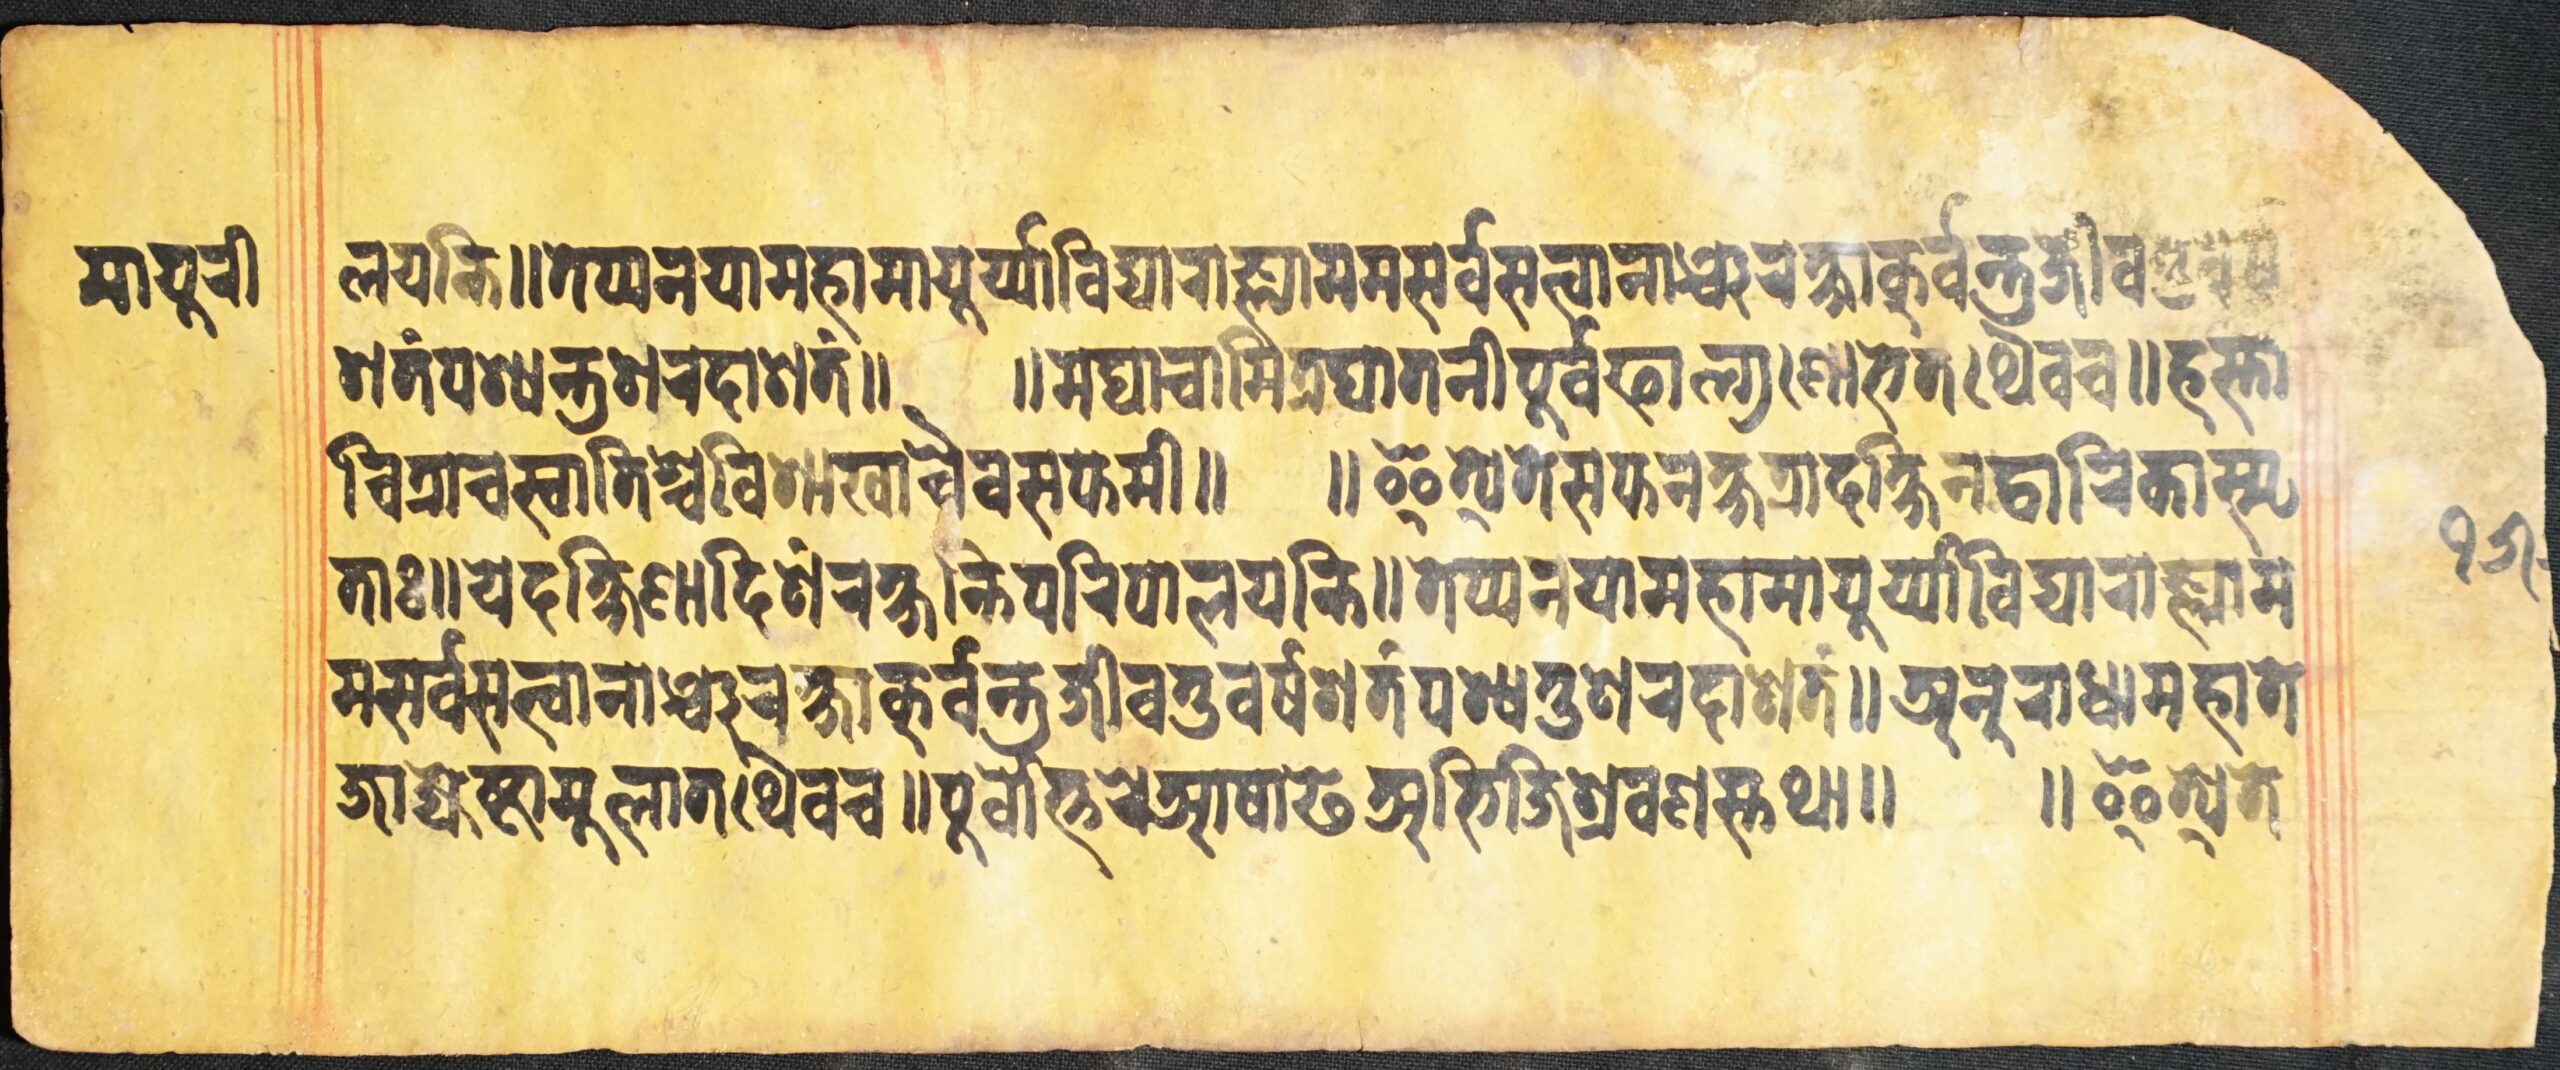 मायुरी
लयन्ति॥तेप्यनयामहामायुर्य्याविद्याराज्ञ्याममसर्वसत्वानाञ्चरक्षाकुर्वन्तुजीव
शतंपश्यन्तुशरदाशतं॥ ॥मघाचामित्रघातनीपूर्वफाल्गुणोभेतथैवच॥हस्ता
चित्राचस्वातिश्चविशाखाचैवसप्तमी॥ ॥इत्येतेसप्तनक्षत्रादक्षिनद्वारिकास्मृ
ताः॥येदक्षिणादिशंरक्षन्तिपरिपालयन्ति॥तेप्यनयामहामायुर्य्याविद्याराज्ञ्याम
मसर्वसत्वानाञ्चरक्षाकुर्वन्तुजीवतुवर्षशतंपश्यतुशरदाशतं॥अनुराधामहाते
जाज्येष्ठामुलातथैवच॥पुर्वोत्तरेआषाढेअभिजिश्रवणस्तथा॥ ॥इत्येते